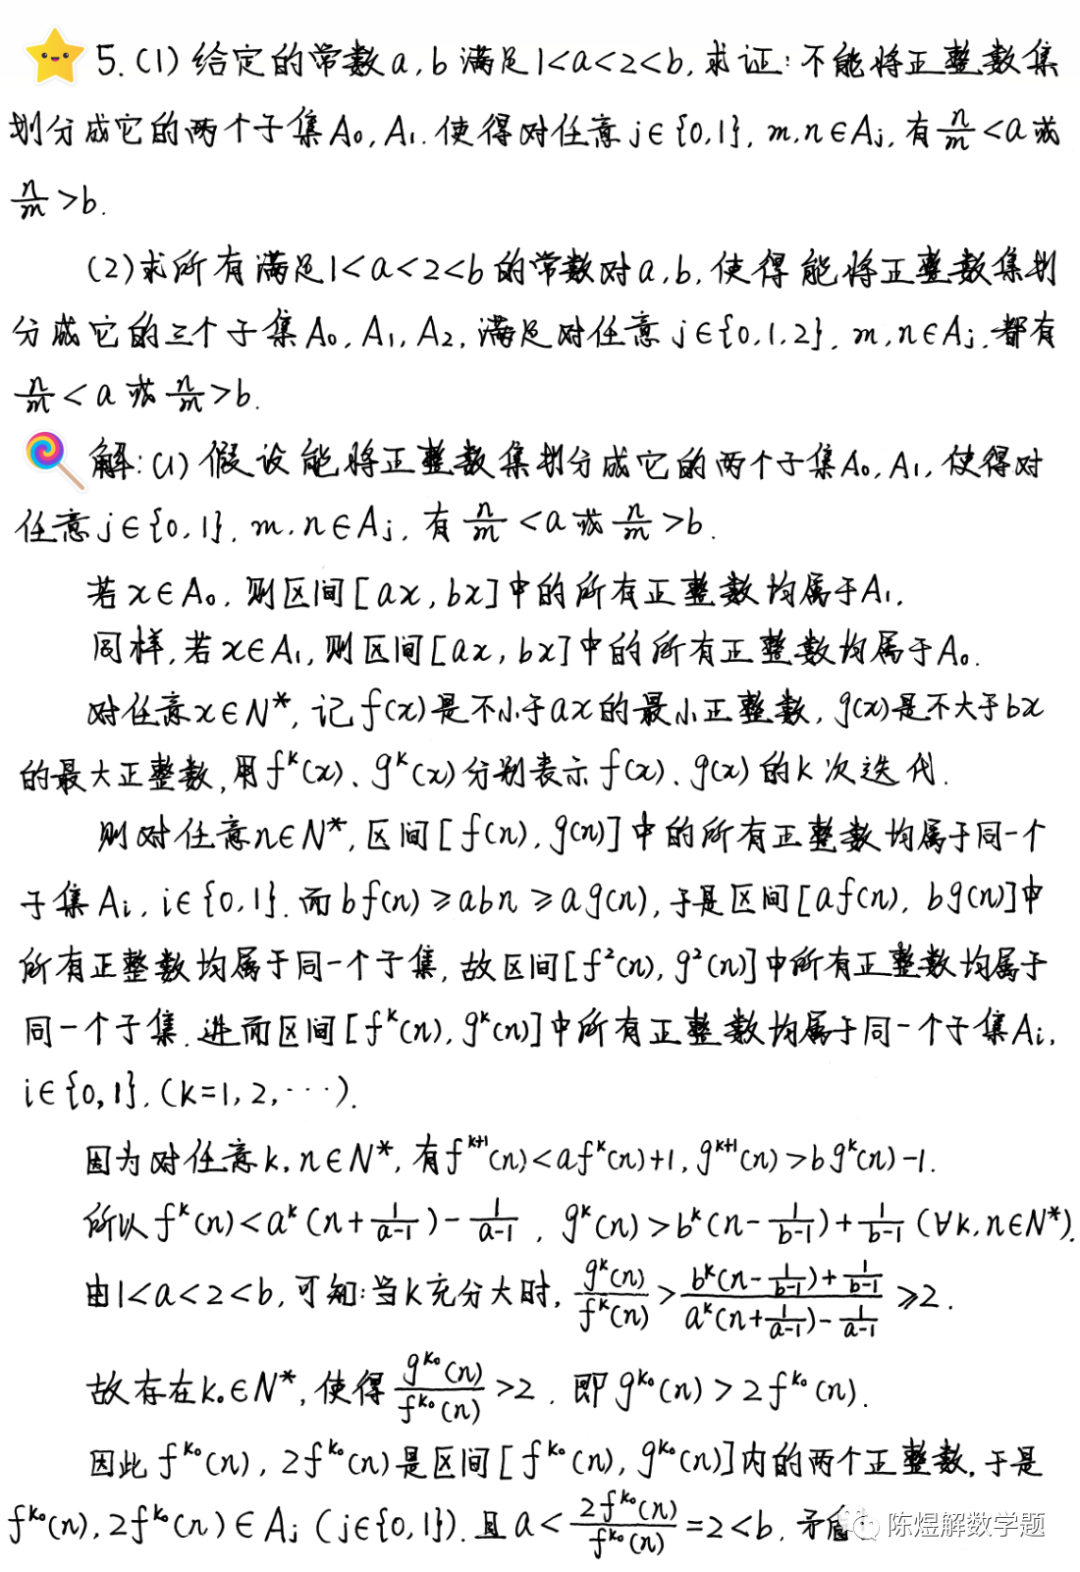 5.(1)给定的常数a,b满足1<a<2<b,求证:不能将正整数集
划分成它的两个子集A₀,A₁.使得对任意j∈{0,1},m,n∈Aⱼ,有n/m<a或
n/m>b.
(2)求所有满足1<a<2<b的常数对a,b,使得能将正整数集划
分成它的三个子集A₀,A₁,A₂,满足对任意j∈{0,1,2},m,n∈Aⱼ,都有
n/m<a或n/m>b.
解:(1)假设能将正整数集划分成它的两个子集A₀,A₁,使得对
任意j∈{0,1},m,n∈Aⱼ,有n/m<a或n/m>b.
若x∈A₀,则区间[ax,bx]中的所有正整数均属于A₁.
同样,若x∈A₁,则区间[ax,bx]中的所有正整数均属于A₀.
对任意x∈N*,记f(x)是不小于ax的最小正整数,g(x)是不大于bx
的最大正整数,用fᵏ(x)、gᵏ(x)分别表示f(x)、g(x)的k次迭代.
则对任意n∈N*,区间[f(n),g(n)]中的所有正整数均属于同一个
子集Aᵢ,i∈{0,1}.而bf(n)≥abn≥ag(n),于是区间[af(n),bg(n)]中
所有正整数均属于同一个子集,故区间[f²(n),g²(n)]中所有正整数均属于
同一个子集.进而区间[fᵏ(n),gᵏ(n)]中所有正整数均属于同一个子集Aᵢ,
i∈{0,1}.(k=1,2,···).
因为对任意k,n∈N*,有fᵏ⁺¹(n)<afᵏ(n)+1,gᵏ⁺¹(n)>bgᵏ(n)-1.
所以fᵏ(n)<aᵏ(n+1/(a-1))-1/(a-1),gᵏ(n)>bᵏ(n-1/(b-1))+1/(b-1)(∀k,n∈N*).
由1<a<2<b,可知:当k充分大时,gᵏ(n)/fᵏ(n)>(bᵏ(n-1/(b-1))+1/(b-1))/(aᵏ(n+1/(a-1))-1/(a-1))≥2.
故存在k₀∈N*,使得gᵏ⁰(n)/fᵏ⁰(n)>2,即gᵏ⁰(n)>2fᵏ⁰(n).
因此fᵏ⁰(n),2fᵏ⁰(n)是区间[fᵏ⁰(n),gᵏ⁰(n)]内的两个正整数,于是
fᵏ⁰(n),2fᵏ⁰(n)∈Aⱼ(j∈{0,1}).且a<2fᵏ⁰(n)/fᵏ⁰(n)=2<b,矛盾
陈煜解数学题